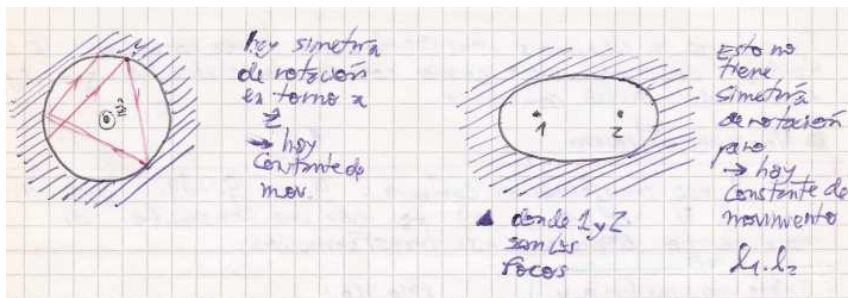 hay simetría
de rotación
en torno a
ẑ
→ hay
Constante de
mov.
ẑ
1
2
▲ donde 1 y 2
son los
focos
Esto no
tiene
simetría
de rotación
pero
→ hay
Constante de
movimiento
l₁.l₂